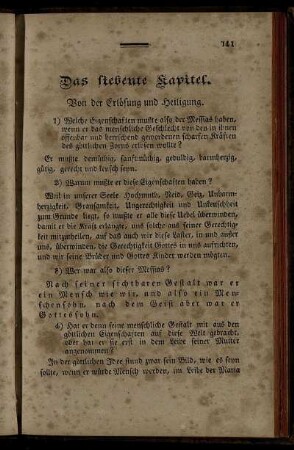 141
Das siebente Kapitel.
Von der Erlösung und Heiligung.
1) Welche Eigenschaften mußte also der Messias haben,
wenn er das menschliche Geschlecht von den in ihnen
offenbar und herrschend gewordenen scharfen Kräften
des göttlichen Zorns erlösen wollte?
Er mußte demüthig, sanftmüthig, geduldig, barmherzig,
gütig, gerecht und keusch seyn.
2) Warum mußte er diese Eigenschaften haben?
Weil in unserer Seele Hochmuth, Neid, Geiz, Unbarm-
herzigkeit, Grausamkeit, Ungerechtigkeit und Unkeuschheit
zum Grunde liegt, so mußte er alle diese Uebel überwinden,
damit er die Kraft erlangte, uns solche aus seiner Gerechtig-
keit mitzutheilen, auf daß auch wir diese Laster, in und außer
uns, überwinden, die Gerechtigkeit Gottes in uns aufrichten,
und wir seine Brüder und Gottes Kinder werden mögen.
3) Wer war also dieser Messias?
Nach seiner sichtbaren Gestalt war er
ein Mensch wie wir, und also ein Men-
schensohn, nach dem Geist aber war er
Gottessohn.
4) Hat er denn seine menschliche Gestalt mit aus den
göttlichen Eigenschaften auf diese Welt gebracht,
oder hat er sie erst in dem Leibe seiner Mutter
angenommen?
In der göttlichen Idee stand zwar sein Bild, wie es seyn
sollte, wenn er würde Mensch werden, im Leibe der Maria